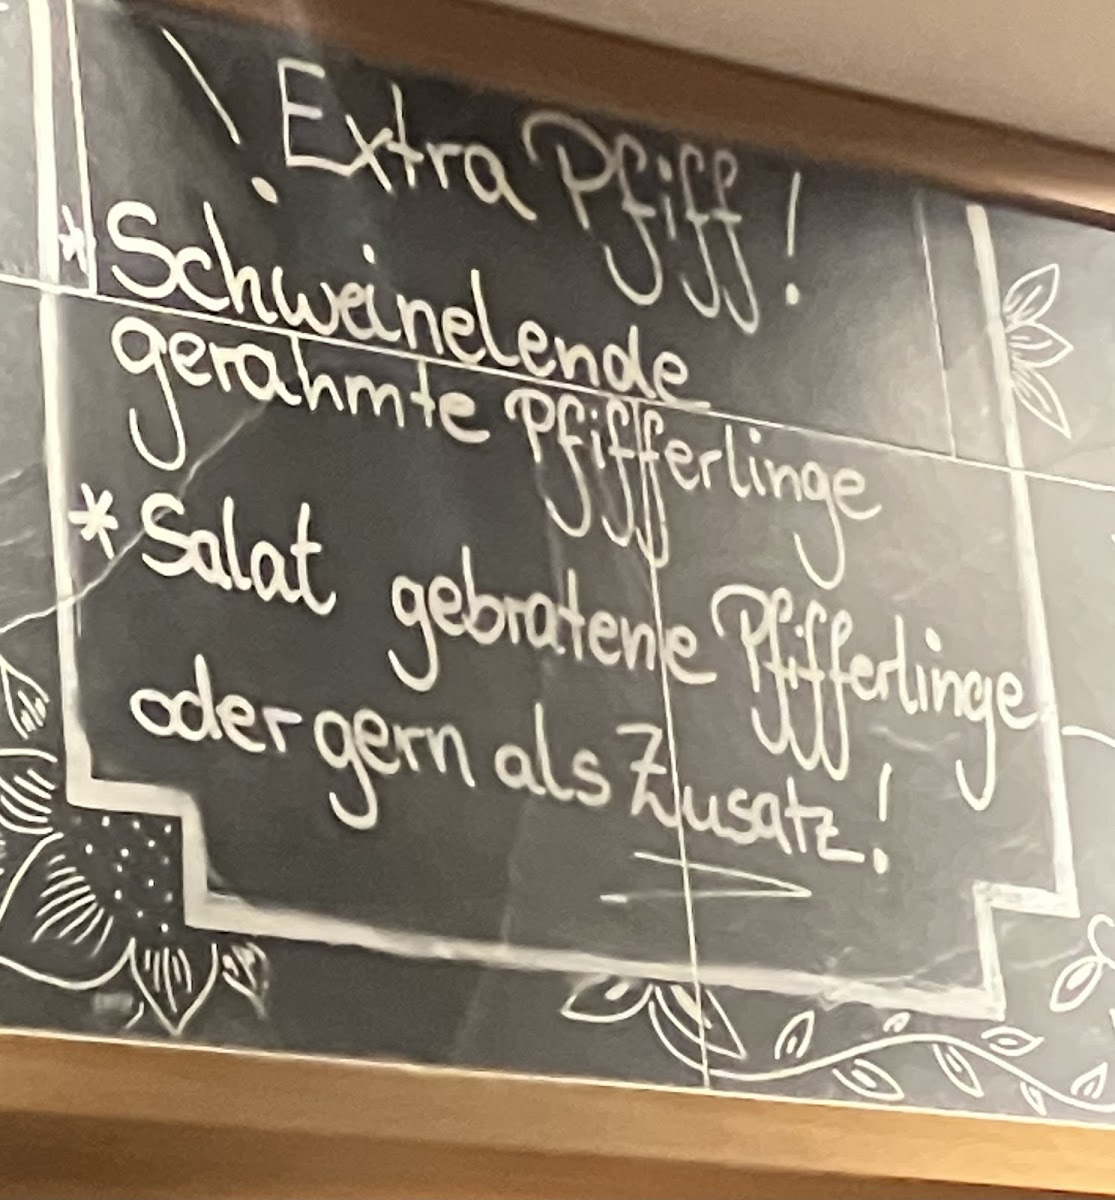 ! Extra Pfiff!
* Schweinelende
gerahmte Pfifferlinge
* Salat gebratene Pfifferlinge
oder gern als Zusatz!